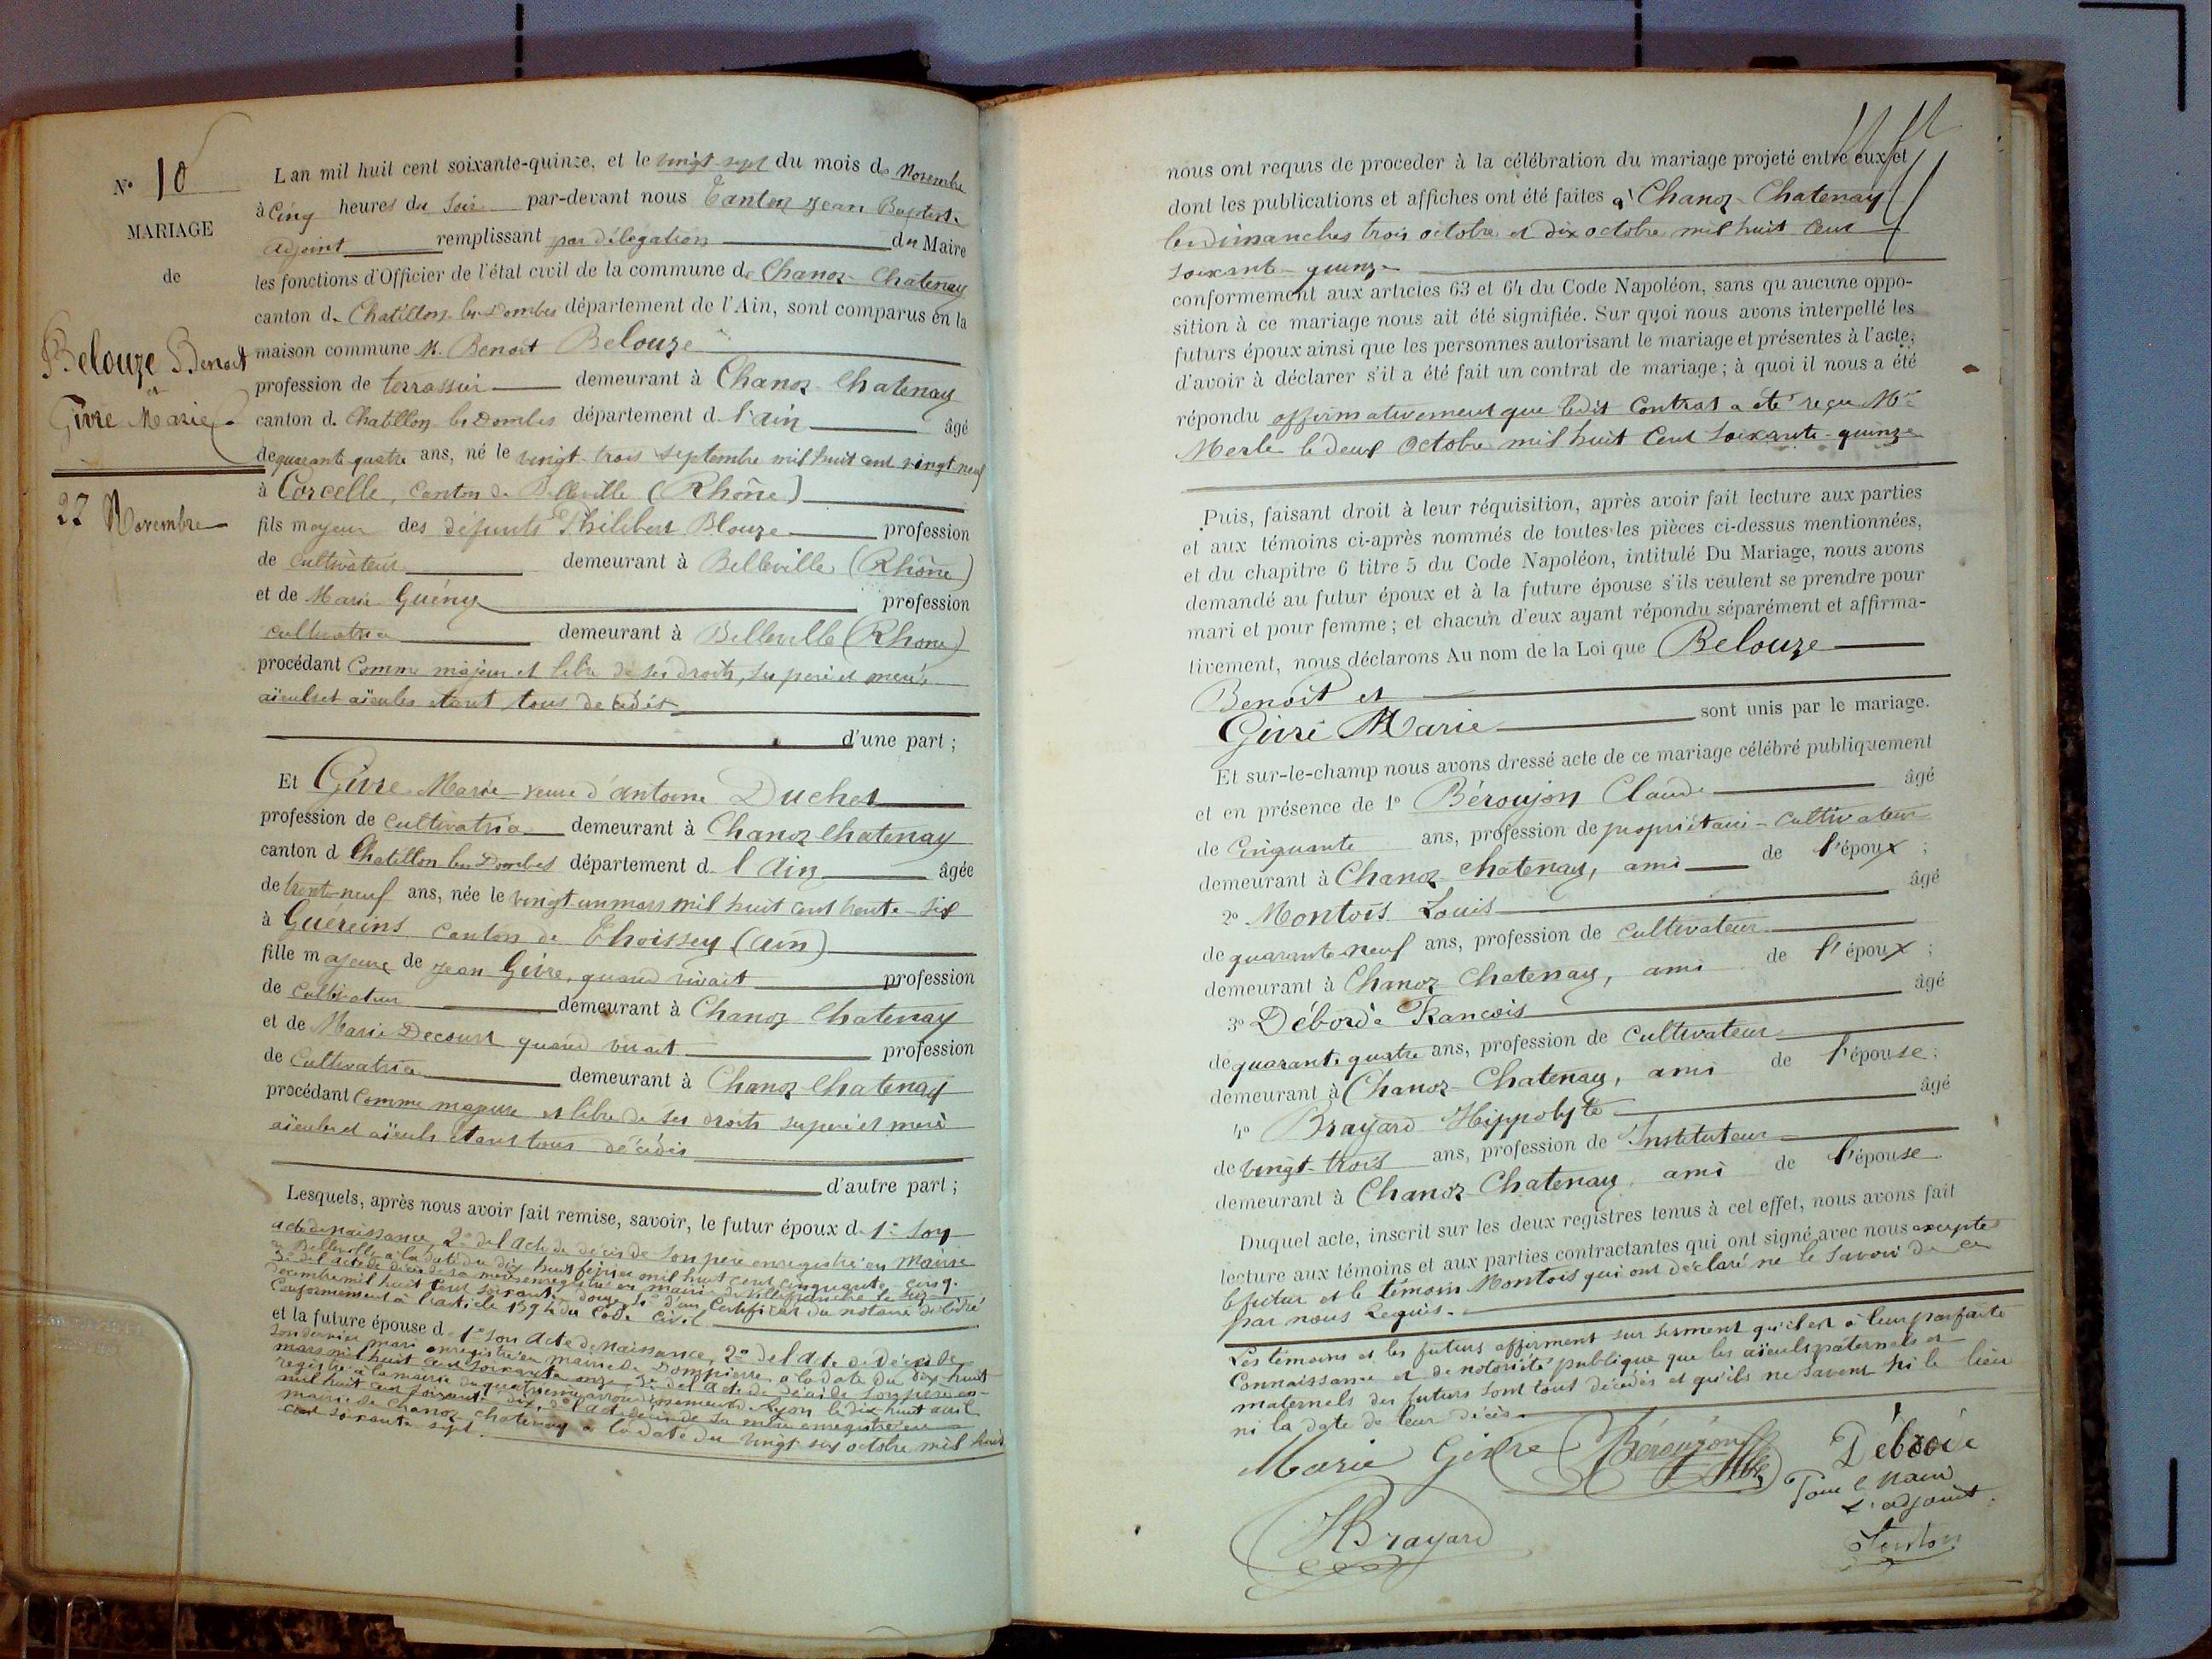 N° 10
MARIAGE
de
Belouze Benoit
et
Givre Marie
27 Novembre
L an mil huit cent soixante-quinze, et le vingt-sept du mois de Novembre
à Cinq heures du Soir par-devant nous Tanton Jean Baptiste
adjoint remplissant par délégation du Maire
les fonctions d'Officier de l'état civil de la commune de Chanoz-Chatenay
canton d. Chatillon les Dombes département de l'Ain, sont comparus en la
maison commune M. Benoit Belouze
profession de terrassier demeurant à Chanoz-Chatenay
canton d. Chatillon les Dombes département d. l'ain âgé
de quarante quatre ans, né le vingt-trois septembre mil huit cent vingt neuf
à Corcelle, Canton de Belleville (Rhône)
fils majeur des défunts Philibert Blouze profession
de cultivateur demeurant à Belleville (Rhône)
et de Marie Guény profession
cultivatrice demeurant à Belleville (Rhone)
procédant Comme majeur et libre de ses droits, ses père et mere,
aïeuls et aïeules etant tous décédés
d'une part ;
Et Givre Marie veuve d'antoine Duchet
profession de cultivatrice demeurant à Chanoz Chatenay
canton d Chatillon les Dombes département d. l'Ain âgée
de trente-neuf ans, née le vingt un mars mil huit cent trente-six
à Guéreins canton de Thoissey (ain)
fille majeure de Jean Givre, quand vivait profession
de cultivateur demeurant à Chanoz Chatenay
et de Marie Decourt quand vivait profession
de Cultivatrice demeurant à Chanoz-Chatenay
procédant Comme majeure et libre de ses droits ses père et mere
aieules et aïeuls etant tous décédés
d'autre part ;
Lesquels, après nous avoir fait remise, savoir, le futur époux d. 1° Son
acte de naissance 2° de l'acte de décès de son père enregistré en mairie
de Belleville à la date du dix huit février mil huit cent cinquante-cinq.
3° de l'acte de décès de sa mère enregistré en mairie de Villefranche le
décembre mil huit cent soixante douze 4° d'un Certificat du notaire délivré
Conformement à l'article 1394 du Code Civil
et la future épouse d. 1° Son Acte de Naissance, 2° de l'Acte de Décès de
son dernier mari enregistré en mairie de Dompierre, à la date du dix-huit
mars mil huit cent soixante onze 3° de l'Acte de décès de son père en-
registré à la mairie du quatrième arrondissement de Lyon le dix huit avril
mil huit cent soixante dix, 4° l'Acte décès de sa mère enregistré en
mairie de Chanoz Chatenay à la date du vingt six octobre mil huit
cent soixante sept.
nous ont requis de proceder à la célébration du mariage projeté entre eux et
dont les publications et affiches ont été faites à Chanoz-Chatenay
les dimanches trois octobre et dix octobre mil huit Cent
Soixante-quinze
conformement aux articles 63 et 64 du Code Napoléon, sans qu aucune oppo-
sition à ce mariage nous ait été signifiée. Sur quoi nous avons interpellé les
futurs époux ainsi que les personnes autorisant le mariage et présentes à l'acte,
d'avoir à déclarer s'il a été fait un contrat de mariage ; à quoi il nous a été
répondu affirmativement que ledit Contrat a été reçu Mtre
Merle le deux Octobre mil huit Cent Soixante-quinze
Puis, faisant droit à leur réquisition, après avoir fait lecture aux parties
et aux témoins ci-après nommés de toutes les pièces ci-dessus mentionnées,
et du chapitre 6 titre 5 du Code Napoléon, intitulé Du Mariage, nous avons
demandé au futur époux et à la future épouse s'ils veulent se prendre pour
mari et pour femme ; et chacun d'eux ayant répondu séparément et affirma-
tivement, nous déclarons Au nom de la Loi que Belouze
Benoit et
Givre Marie sont unis par le mariage.
Et sur-le-champ nous avons dressé acte de ce mariage célébré publiquement
et en présence de 1° Béroujon Claude âgé
de Cinquante ans, profession de propriétaire-cultivateur
demeurant à Chanoz-Chatenay, ami de l'époux ;
2° Montois Louis âgé
de quarante neuf ans, profession de cultivateur
demeurant à Chanoz Chatenay, ami de l'époux ;
3° Débordé Francois âgé
de quarante quatre ans, profession de Cultivateur
demeurant à Chanoz-Chatenay, ami de l'épouse ;
4° Brayard Hippolyte âgé
de vingt-trois ans, profession de Instituteur
demeurant à Chanoz-Chatenay, ami de l'épouse
Duquel acte, inscrit sur les deux registres tenus à cet effet, nous avons fait
lecture aux témoins et aux parties contractantes qui ont signé avec nous excepté
le futur et le témoin Montois qui ont déclaré ne le Savoir de ce
par nous Requis.
Les témoins et les futurs affirment sur serment qu'il est à leur parfaite
Connaissance et de notoriété publique que les aieuls paternels et
maternels des futurs sont tous décédés et qu'ils ne savent ni le lieu
ni la date de leur décès.
Marie Givre Béroujon Débordé
Pour le Maire
L'adjoint
HBrayard
Tanton